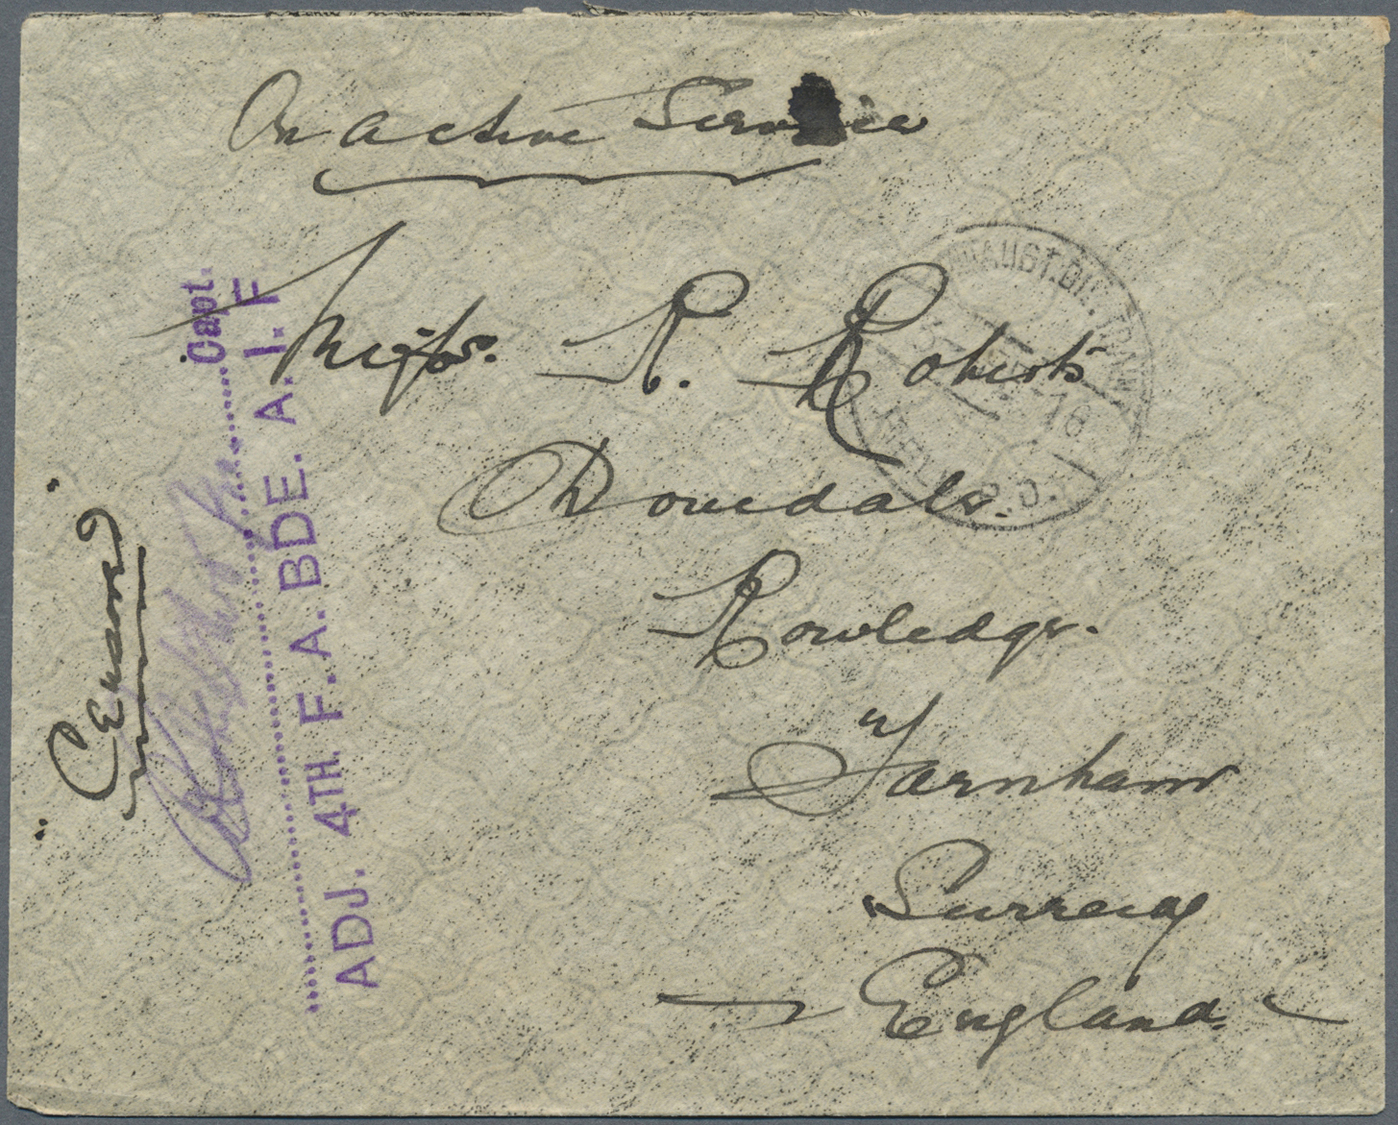 On Active Service
Miss. R. Roberts
Dovedale.
Rowledge.
Farnham
Surrey
England.
Censored
Capt.
ADJ. 4TH. F. A. BDE. A. I. F
AUST. DIV. TRAIN
18
FIELD P.O.